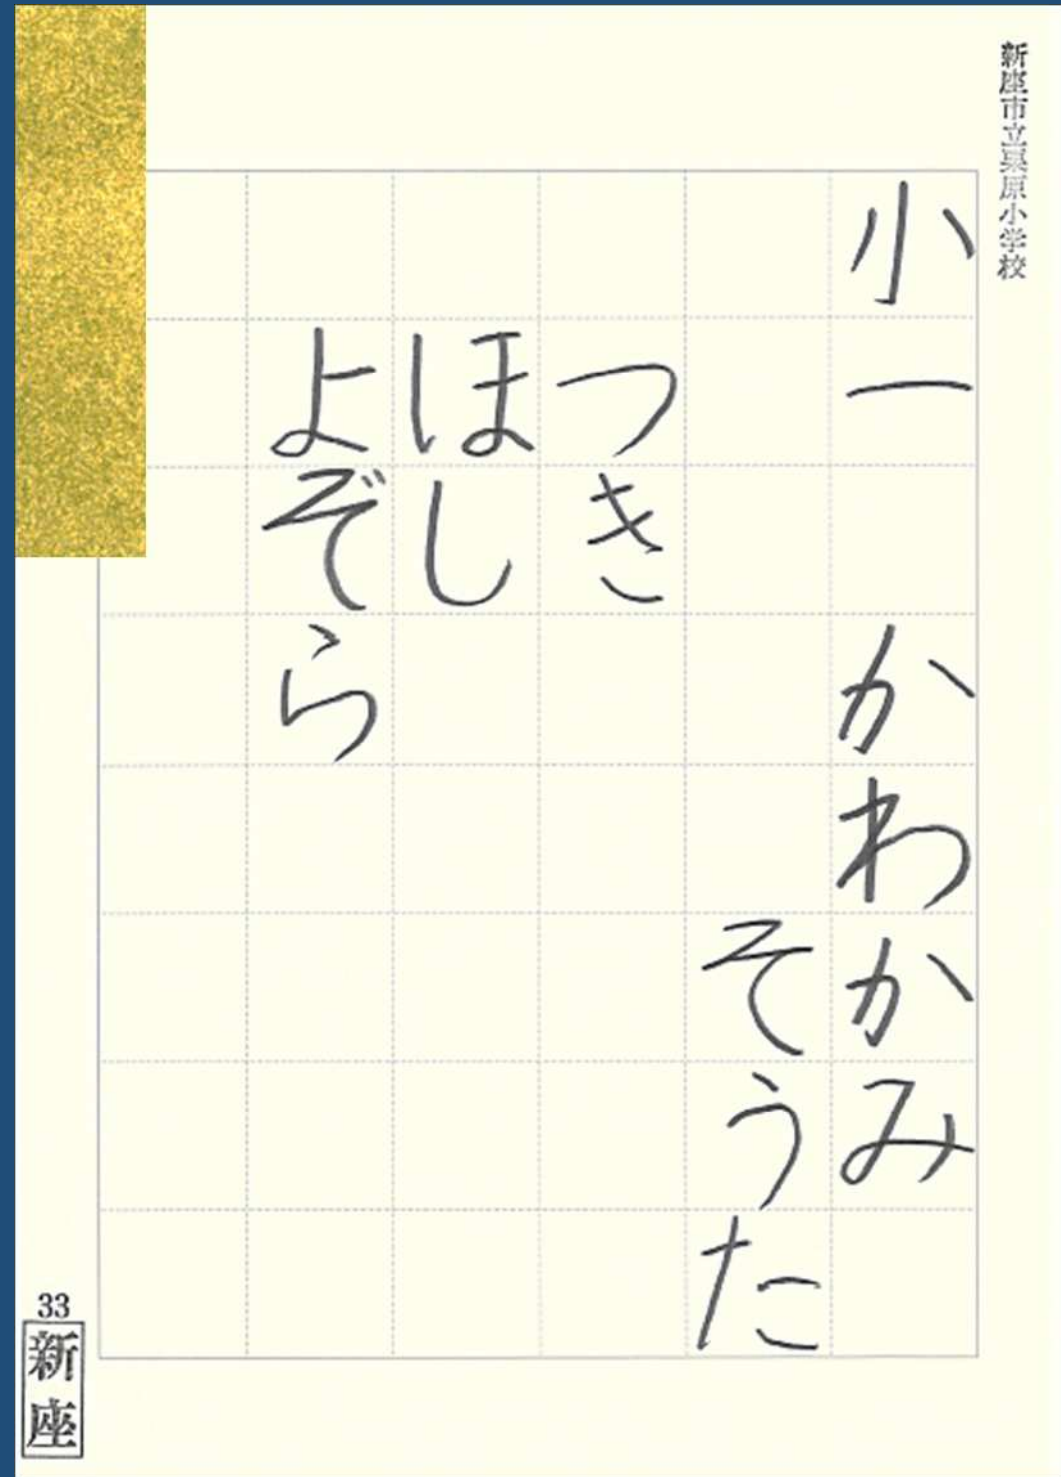 新座市立栗原小学校
小一 かわかみ
そうた
つき
ほし
よぞら
33
新座